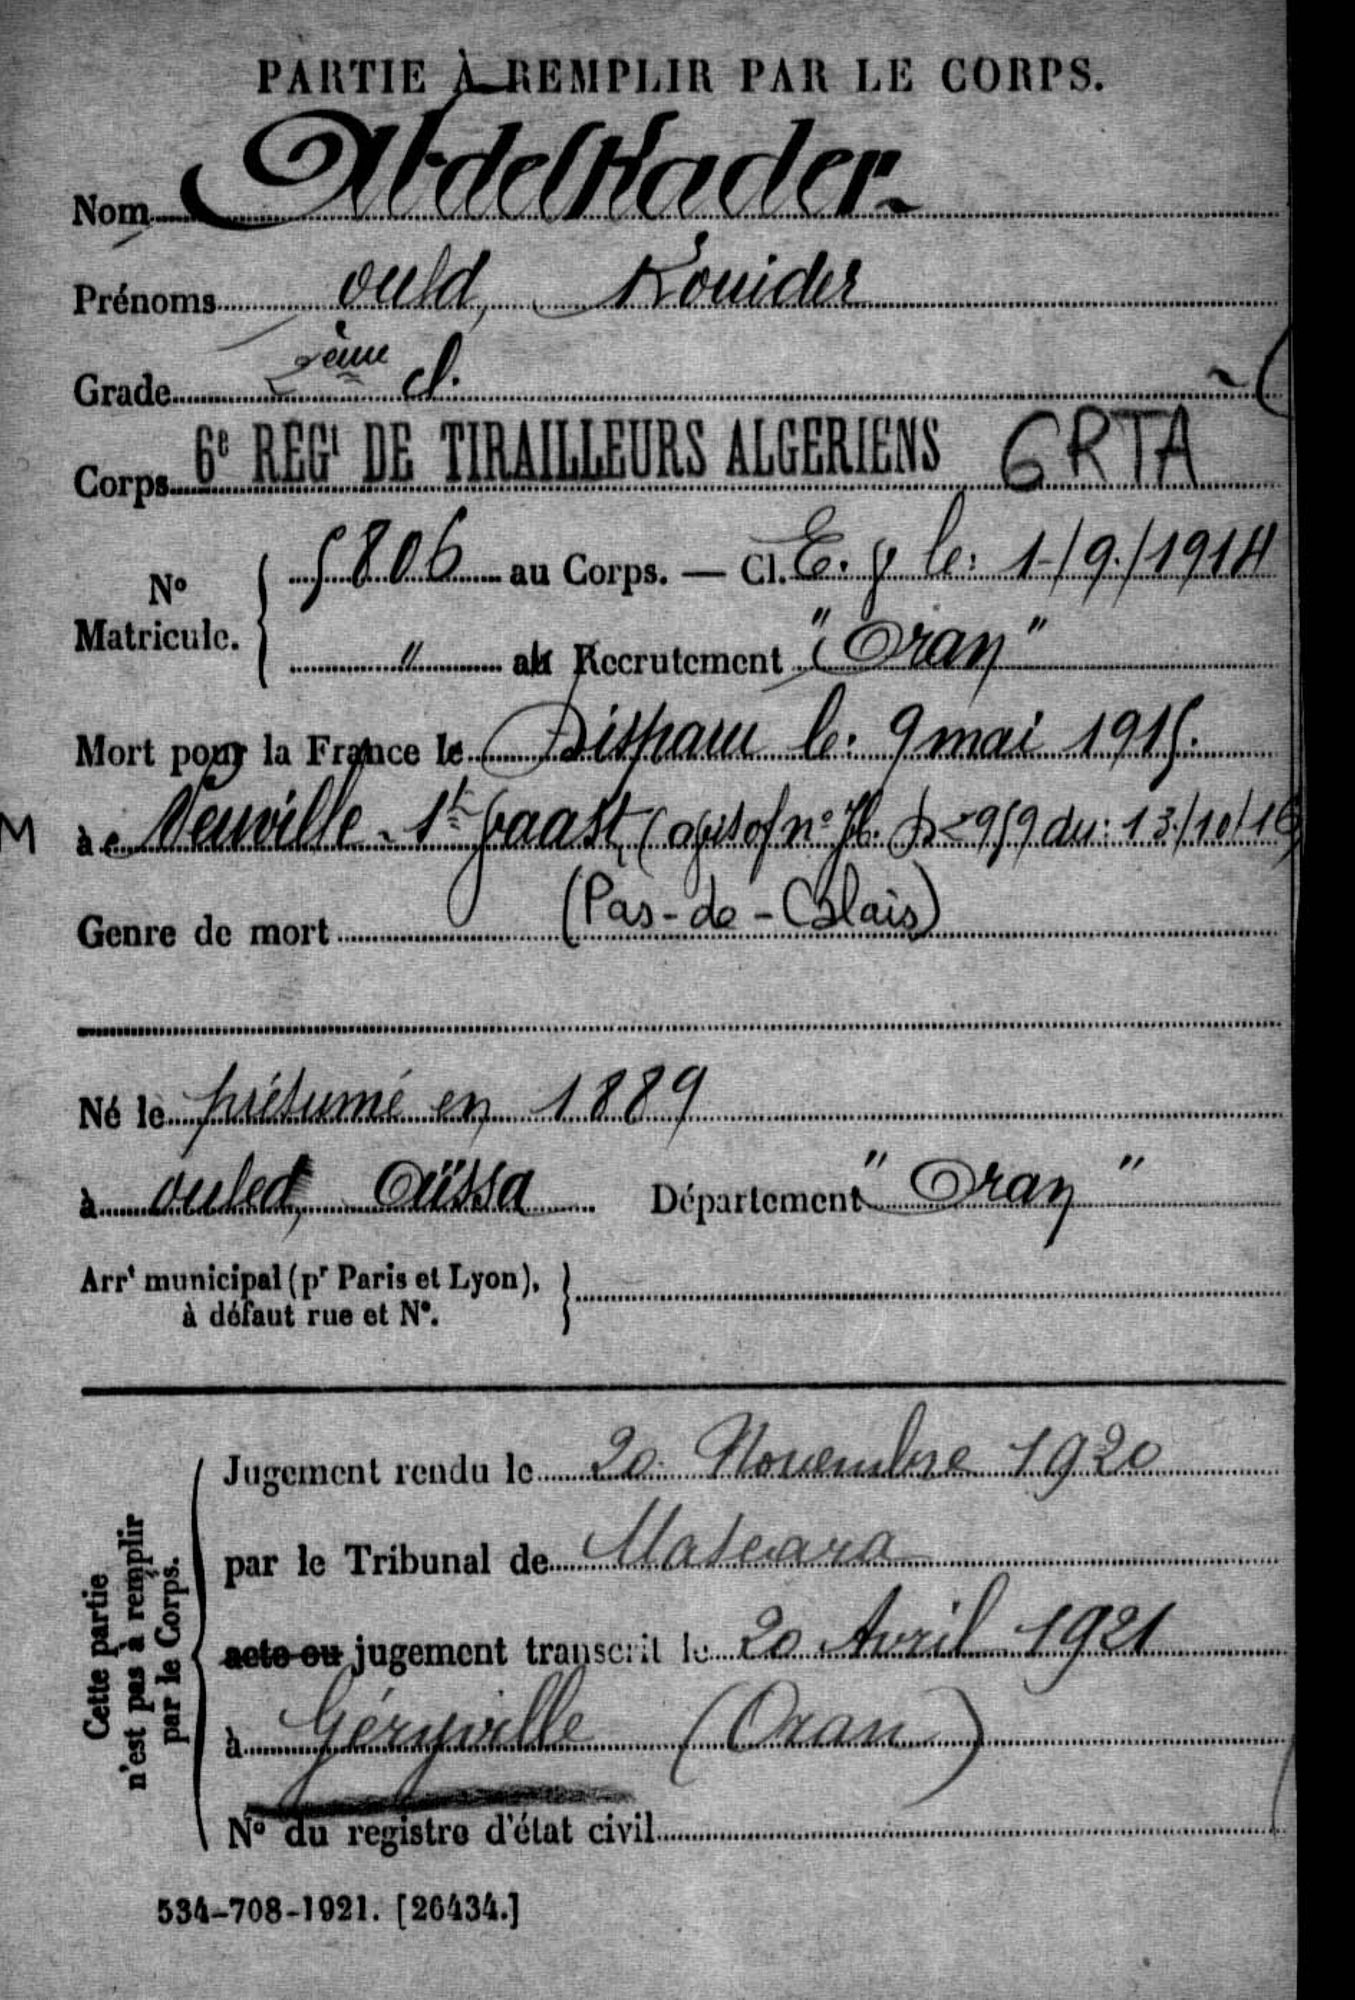 PARTIE À REMPLIR PAR LE CORPS.
Nom AbdelKader
Prénoms ould, Kouider
Grade 2ème cl.
Corps 6e RÉGt DE TIRAILLEURS ALGERIENS 6RTA
No Matricule. 5806 au Corps. — Cl. E. le: 1-/9./1914
" au Recrutement "Oran"
Mort pour la France le Disparu le: 9 mai 1915.
M
à Neuville-St Vaast, (no 2959 du: 13/10/16)
(Pas-de-Calais)
Genre de mort
Né le présumé en 1889
à ouled, Aïssa Département "Oran"
Arrt municipal (pr Paris et Lyon),
à défaut rue et No.
Cette partie
n'est pas à remplir
par le Corps.
Jugement rendu le 20 Novembre 1920
par le Tribunal de Mascara
acte ou jugement transcrit le 20 Avril 1921
à Géryville (Oran)
No du registre d'état civil
534-708-1921. [26434.]